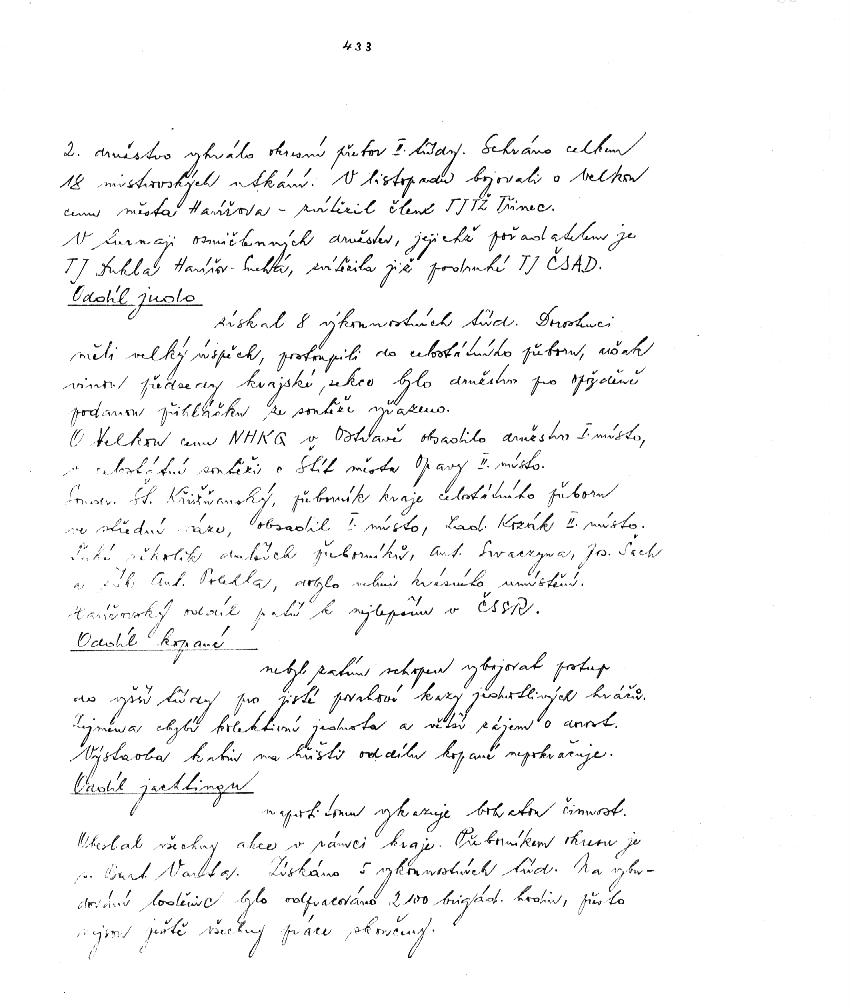 433
2. družstvo vyhrálo okresní přebor II. třídy. Sehráno celkem
18 mistrovských utkání. V listopadu bojovali o Velkou
cenu města Havířova - zvítězil člen TJ TŽ Třinec.
V turnaji osmičlenných družstev, jejichž pořadatelem je
TJ Dukla Havířov-Suchá, zvítězila již podruhé TJ ČSAD.
Oddíl judo
získal 8 výkonnostních tříd. Dorostenci
měli velký úspěch, postoupili do celostátního přeboru, avšak
vinou předsedy krajské sekce bylo družstvo pro opožděně
podanou přihlášku ze soutěže vyřazeno.
O Velkou cenu NHKG v Ostravě obsadilo družstvo I. místo,
v celostátní soutěži o Štít města Opavy II. místo.
Soudr. Št. přeborník kraje celostátního přeboru
ve střední váze, obsadil I. místo, Lad. Kozák II. místo.
Také několik dalších přeborníků, Ant. Jos. Čech
a Ant. došlo velmi krásného umístění.
Havířovský oddíl patří k nejlepším v ČSSR.
Oddíl kopané
nebyl zatím schopen vybojovat postup
do vyšší třídy pro jisté povahové kazy jednotlivých hráčů.
Zejména chybí kolektivní jednota a větší zájem o dorost.
Výstavba kabin na hřišti oddílu kopané nepokračuje.
Oddíl jachtingu
naproti tomu vykazuje bohatou činnost.
Obeslal všechny akce v rámci kraje. Přeborníkem okresu je
s. Vanta. Získáno 5 výkonnostních tříd. Na vybu-
dování loděnice bylo odpracováno 2100 brigád. hodin, přesto
nejsou ještě všechny práce skončeny.